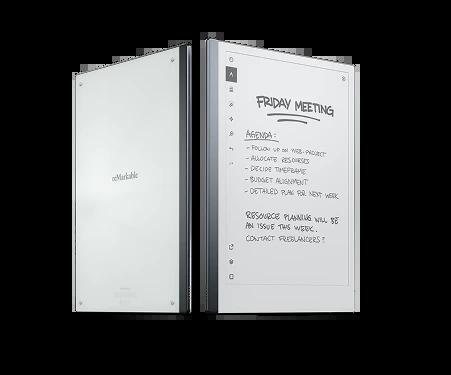 reMarkable
FRIDAY MEETING
AGENDA:
- FOLLOW UP ON WEB-PROJECT
- ALLOCATE RESOURSES
- DECIDE TIMEFRAME
- BUDGET ALIGNMENT
- DETAILED PLAN FOR NEXT WEEK
RESOURCE PLANNING WILL BE
AN ISSUE THIS WEEK.
CONTACT FREELANCERS?